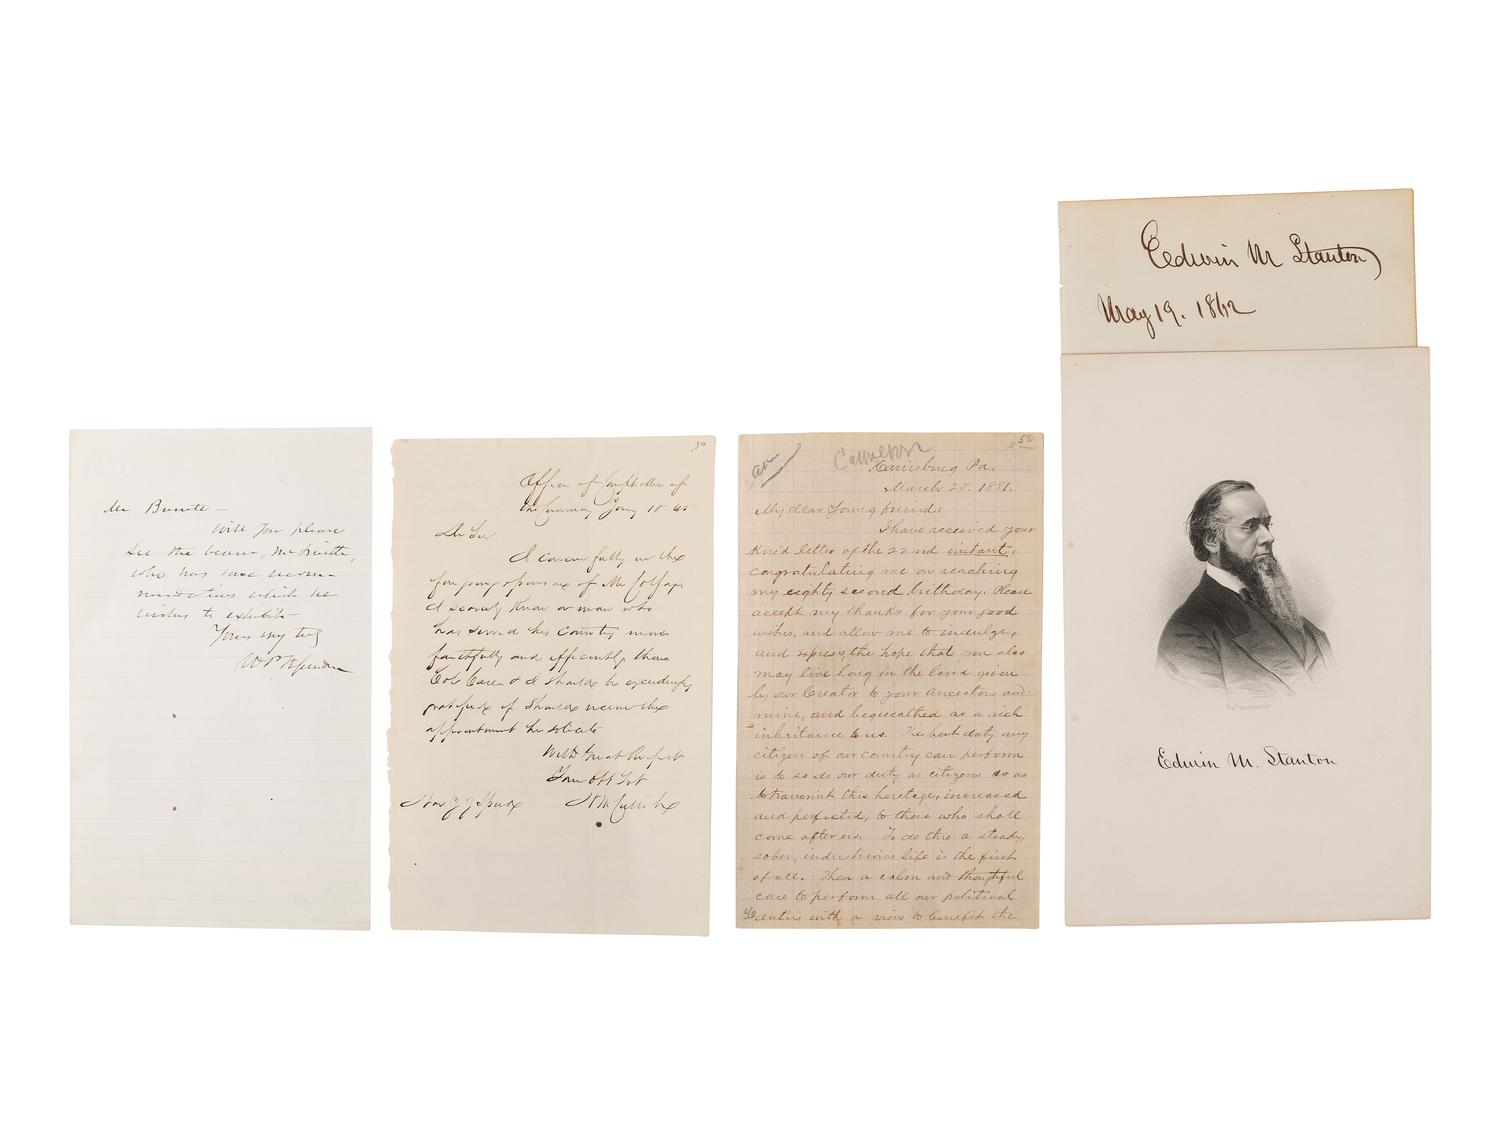 Mr Burrett –
Will you please
see the bearer, Mr
who has some recom-
mendations which he
wishes to exhibit
Yours very truly
W. P. Fessenden
50
Office of Comptroller of
the Currency Jany 18 65
Dr Sir
I concur fully in the
foregoing opinions of Mr Colfax
I scarcely know a man who
has served his country more
faithfully and efficiently than
Col & I should be exceedingly
gratified if should receive the
appointment he solicits
With Great Respect
Your Obt Svt
H McCulloch
Hon
ans
Cameron
50
Harrisburg Pa.
March 25. 1881.
My dear Young friend:
I have received your
kind letter of the 22nd instant,
congratulating me on reaching
my eighty second birthday. Please
accept my thanks for your good
wishes, and allow me to indulge,
and express, the hope that you also
may live long in the land given
by our Creator to your ancestors and
mine, and bequeathed as a rich
inheritance to us. The best duty any
citizen of our country can perform
is to so do our duty as citizens so as
to transmit this heritage, increased
and perfected, to those who shall
come after us. To do this a steady,
sober, industrious life is the first
of all. Then a calm and thoughtful
care to perform all our political
duties with a view to benefit the
Edwin M Stanton
May 19. 1862
Edwin M. Stanton